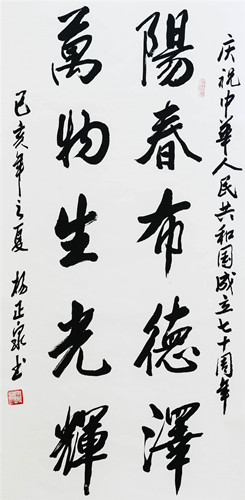 庆祝中华人民共和国成立七十周年
陽春布德澤
萬物生光輝
己亥年之夏 杨正泉书